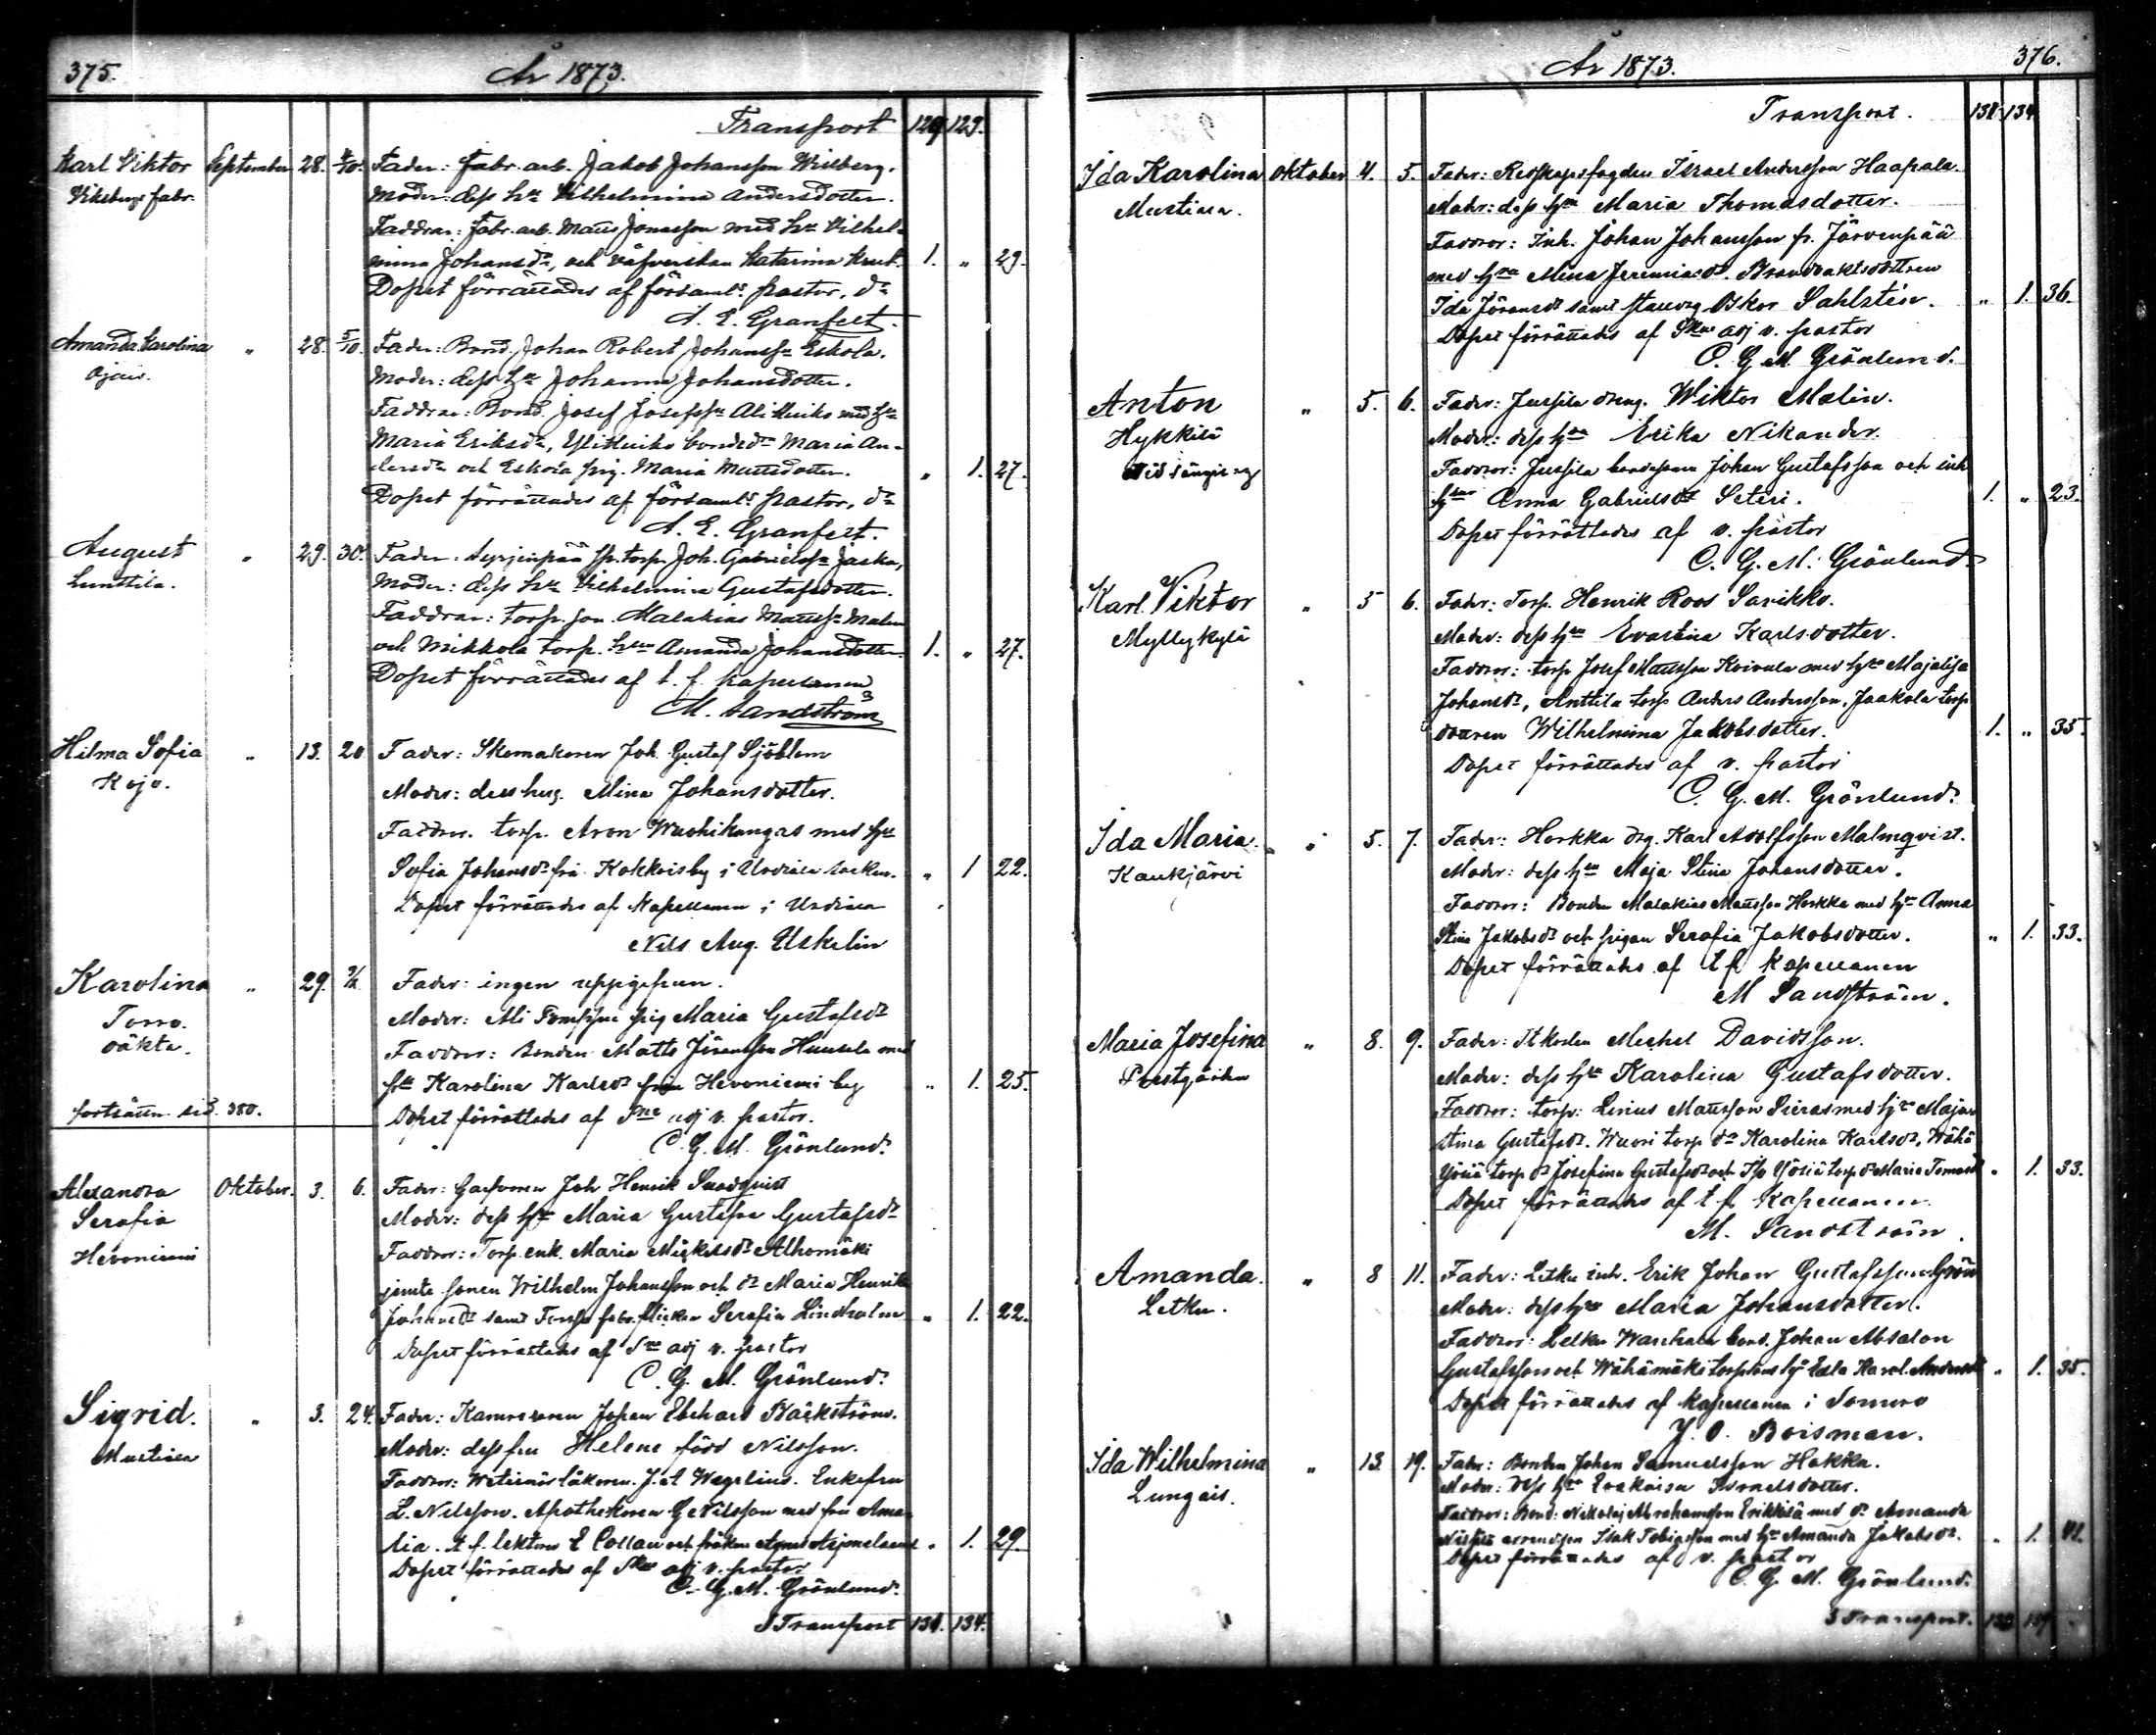 375.
År 1873.
Transport 129 129.
Karl Viktor September 28. 4/10. Fader: Fabr. arb. Jakob Johansson Wilberg.
Viksbergs fabr. Moder: dess Hu Vilhelmina Andersdotter.
Faddrar: Fabr. arb. Matts Jonasson med Hu Vilhel-
mina Johansdr, och väfverskan Katarina 1. " 29.
Dopet förrättades af församl: pastor, dn
A. E. Granfelt.
Amanda Carolina " 28. 5/10. Fader: Bond. Johan Robert Johanss:n Eskola.
Ojais. Moder: dess Hu Johanna Johansdotter.
Faddrar: Bond. Josef Josefss:n med Hu
Maria Eriksdr, bondedr Maria An-
dersdr och Eskola pig. Maria Mattsdotter. " 1. 27.
Dopet förrättades af församl: pastor, dn
A. E. Granfelt.
August " 29. 30. Fader: torp. Joh. Gabrielss:n Jaska,
Lunttila. Moder: dess Hu Vilhelmina Gustafsdotter.
Faddrar: torp. son Malakias Mattss:n Malm
och Mikkola torp. Amanda Johansdotter. 1. " 27.
Dopet förrättades af t. f. kapellanen
M. Sandström
Hilma Sofia " 13. 20 Fader: Skomakaren Joh. Gustaf Sjöblom
Kojo. Moder: dess hus. Mina Johansdotter.
Faddrar. torp. Aron Wuohikangas med Hu
Sofia Johansdr frå. by i Urdiala socken. " 1 22.
Dopet förrättades af Kapellanen i Urdiala
Nils Aug. Uskelin
Karolina " 29. Fader: ingen uppgifven.
Torro. Moder: pig Maria Gustafsdr
Faddrar: Bonden Matts Jöransson med
Hu Karolina Karlsdr från Hevoniemi by " 1. 25.
fortsättn. sid. 380.
Dopet förrättades af adj v. pastor.
C. G. M. Grönlund.
Alexandra Oktober. 3. 6. Fader: Garfvaren Joh Henrik Sundqvist
Serafia Moder: dess Hu Maria Gustafva Gustafsdr
Hevoniemi Faddrar: Torp. enk. Maria Mickelsdr Alhomäki
jemte sonen Wilhelm Johansson och dr Maria Henrika
Johansdr samt fabr. flickan Serafia Lindholm " 1. 22.
Dopet förrättades af adj v. pastor
C. G. M. Grönlund.
Sigrid. " 3. 24. Fader: Kamreraren Johan Eberhard Bäckström.
Mustiala Moder: dess fru Helene född Nilsson.
Faddrar: Weterinärläkaren J. A Wegelius. Enkefru
L. Nilsson. Apothekaren G Nilsson med fru Ama-
lia. t. f. lektorn E Collan och fröken Agnes " 1. 29.
Dopet förrättades af adj v. pastor
C. G. M. Grönlund.
Transport 131. 134.
År 1873.
376.
Transport. 131 134
Ida Karolina Oktober 4. 5. Fader: Redskapsfogden Israel Andersson Haapala.
Mustiala. Moder: dess Hu Maria Thomasdotter.
Faddrar: Inh. Johan Johansson fr. Järvenpää
med Hu Mina Jeremiasdr. Brandvaktsdottren
Ida Jöransdr samt Oskar Sahlstén. " 1. 36.
Dopet förrättades af adj v. pastor
C. G. M. Grönlund.
Anton " 5. 6. Fader: Jussila dräng. Wiktor Malin.
Hykkilä Moder: dess Hu Erika Nikander.
Faddrar: Jussila bondesonen Johan Gustafsson och inh.
Anna Gabrielsdr Seteri. 1. " 23.
Dopet förrättades af v. pastor
C. G. M. Grönlund.
Karl Viktor " 5 6. Fader: Torp. Henrik Roos Sarikko.
Myllykylä Moder: dess Hu Evastina Karlsdotter.
Faddrar: torp. Josef Mattsson Koivula med Hu Majalisa
Johansdr, Anttila torp Anders Andersson, Jaakola torp
dottren Wilhelmina Jakobsdotter. 1. " 35.
Dopet förrättades af v. pastor
C. G. M. Grönlund.
Ida Maria " 5. 7. Fader: Horkka drg. Karl Adolfsson Malmqvist.
Kaukjärvi Moder: dess Hu Maja Stina Johansdotter.
Faddrar: Bonden Malakias Mattsson Horkka med Hu Anna
Stina Jakobsdr och pigan Serafia Jakobsdotter. " 1. 33.
Dopet förrättades af t. f. kapellanen
M Sandström.
Maria Josefina " 8. 9. Fader: Michel Davidsson.
Prestgården Moder: dess Hu Karolina Gustafsdotter.
Faddrar: torp: Linus Mattsson Sieras med Hu Maja
Stina Gustafsdr. Wuori torp dr Karolina Karlsdr, Wähä
torp dr Josefina Gustafsdr och Iso torp dr Maria " 1. 33.
Dopet förrättades af t. f. Kapellanen.
M. Sandström.
Amanda. " 8 11. Fader: Letku inh. Erik Johan Gustafsson Grön
Letku. Moder: dess Hu Maria Johansdotter.
Faddrar: Letku bond. Johan Absalon
Gustafsson och Wähämäki Hu Eva Karol. Andersdr " 1. 35.
Dopet förrättades af Kapellanen i Somero
J. O. Roisman.
Ida Wilhelmina " 13. 19. Fader: Bonden Johan Samuelsson Hakka.
Lungais. Moder: dess Hu Evakaisa Israelsdotter.
Faddrar: Bond. Nikolaj Abrahamsson Erikkilä med dr Amanda
Isak Tobiasson med Hu Amanda Jakobsdr. " 1. 41.
Dopet förrättades af v. pastor
C. G. M. Grönlund.
Transport.